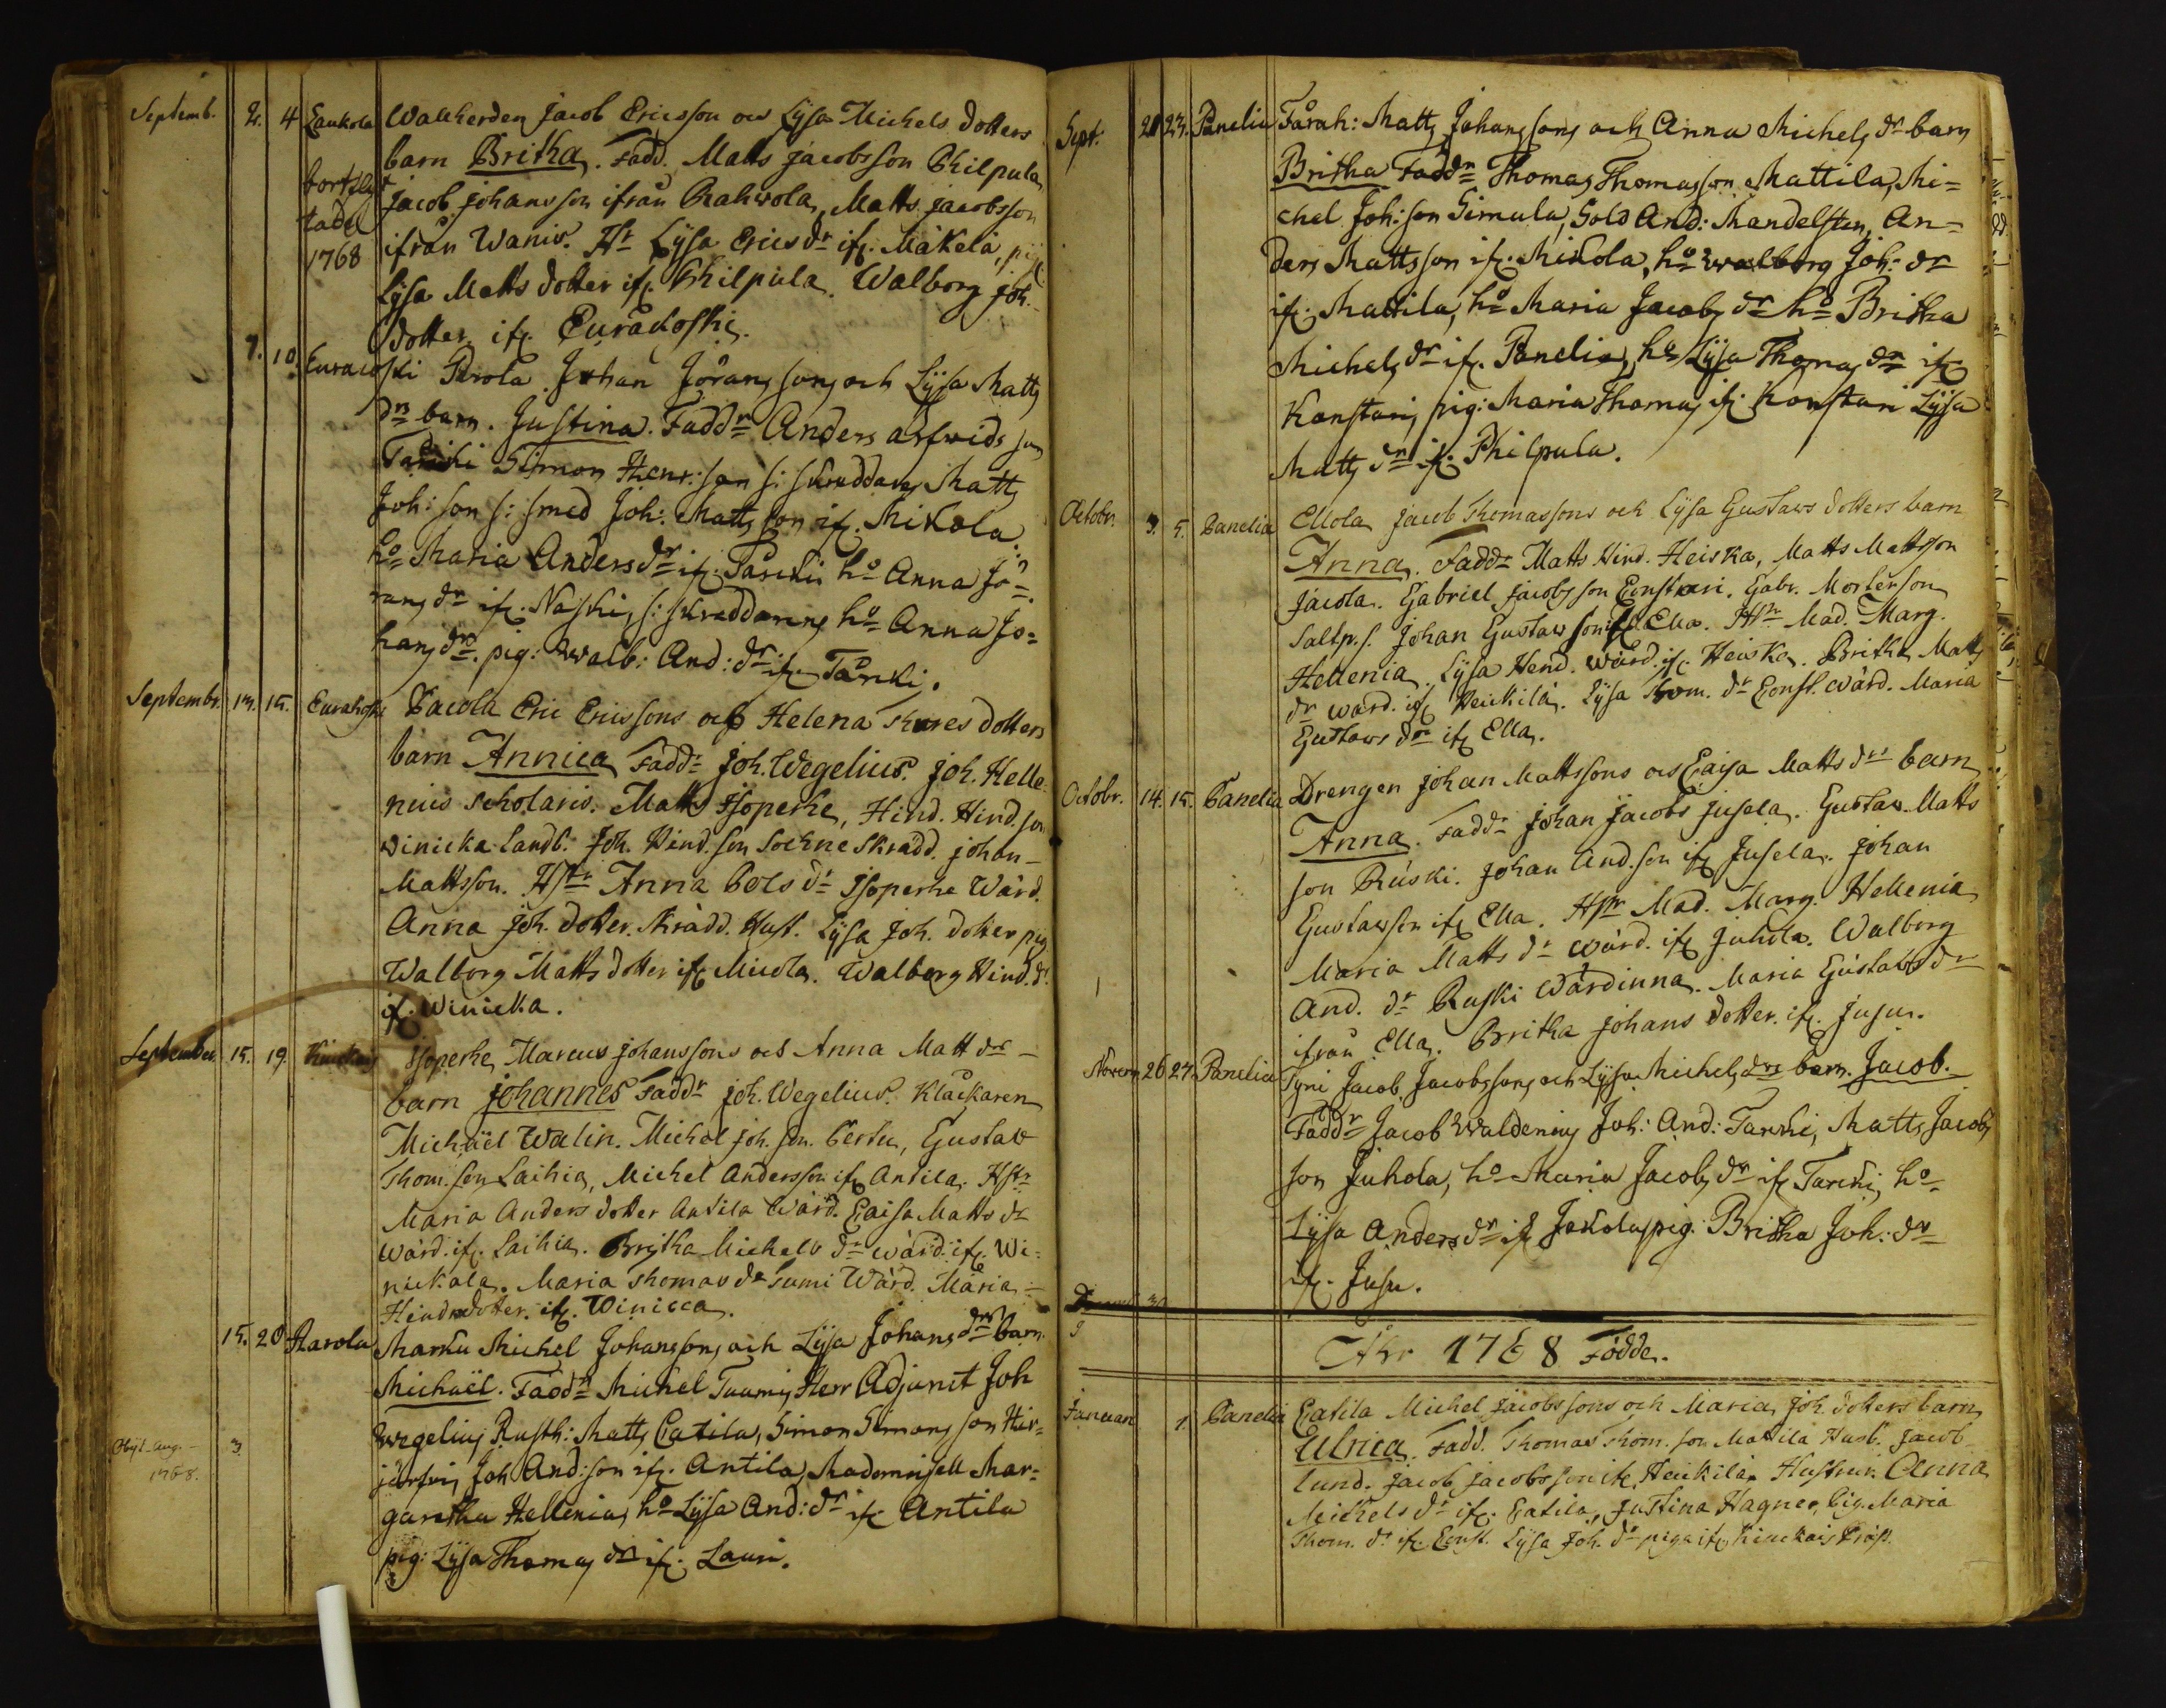 Septemb. 2. 4 Laukola Wallherden Jacob Ericsson och Lÿsa Michels dotters
barn Britha. Fadd. Matts Jacobsson Philpula
bortflyt Jacob Johansson ifrån Rahwola, Matts Jacobsson
1768 ifrån Wanis. Hr Lÿsa Erics dr ifr. Mäkelä,
Lÿsa Matts dotter ifr. Philpula. Walborg Joh.
dotter ifr. Euraåoski.
7. 10. Euraåoski Perola Johan Jörans sons och Lÿsa Matts
drs barn. Justina. Faddr Anders Arfwids son
Simon Henr: son s: skraddare, Matts
Joh: son s: smed Joh: Matts son ifr. Mikola
ho Maria Anders dr ifr. Tarcki ho Anna Jö=
rans dr ifr. Naski, s: skraddarens ho Anna Jo=
hans dr. pig: Walb: And: dr ifr Tarcki.
Septembr. 13. 15. Euraåoski Pacola Eric Ericssons och Helena Thures dotters
barn Annica Faddr Joh. Wegelius. Joh. Helle
nius scholaris. Matts Isoperhe, Hind. Hind. son
Winicka Landb: Joh. Hind. son Sockne Skrädd. Johan
Mattsson. Hstr Anna Påls dr Isoperhe Wärd.
Anna Joh. dotter. Skrädd. Hust. Lÿsa Joh. dotter pig
Walborg Matts dotter ifr Micola. Walborg Hind. dr
ifr. Winicka.
September 15. 19. Kiuckais Isoperhe Marcus Johanssons och Anna Matts dr
barn Johannes Faddr Joh. Wegelius. Klackaren
Michäel Walin. Michel Joh. son. Perttu, Gustav
Thom. son Laihia, Michel Andersson ifr Antila. Hstr
Maria Anders dotter Antila Wärd. Caisa Matts dr
wärd. ifr. Laihia. Britha Michels dr wärd. ifr. Wi=
nickala. Maria Thomas dr Tumi Wärd. Maria
Hindr dotter. ifr. Winicca.
15. 20 Harola Marku Michel Johans sons och Lÿsa Johans drs barn
Michaël. Faddr Michel Tuumi, Herr Adjunct Joh
Wegelius, Rusth: Matts Catila, Simon Simons son Hir=
järfwi, Joh And: son ifr. Antila, Mademoisell Mar=
garetha Hellenia, ho Lÿsa And: dr ifr Antila
pig: Lÿsa Thomas dr ifr. Lauri.
Aug. 3
1768.
Sept. 21 23. Panelia Fårah: Matts Johans sons och Anna Michels dr barn
Britha Faddr Thomas Thomasson Mattila, Mi=
chel Joh: son Simula, Sold And: Mandelsten, An=
ders Mattsson ifr. Mikola, ho Walborg Joh: dr
ifr. Mattila, ho Maria Jacobs dr ho Britha
Michels dr ifr. Panelia, ho Lÿsa Thomas dr ifr
Konstari, pig: Maria Thomas ifr: Konstari Lÿsa
Matts dr ifr. Philpula.
Octobr. 3. 5. Panelia Ellola Jacob Thomassons och Lÿsa Gustaws dotters barn
Anna. Faddr Matts Hind. Heiska, Matts Mattsson
Jacola. Gabriel Jacobsson Constari. Gabr. Mortenson
Saltp. s. Johan Gustaw son ifr Ella. Hstr Mad. Marg.
Hellenia. Lÿsa Hend. Wärd. ifr. Heiska. Britha Matts
dr ward. ifr Heickilä. Lÿsa Thom. dr Const. Wärd. Maria
Gustaws dr ifr Ella.
Octobr. 14. 15. Panelia Drengen Johan Mattssons och Caisa Matts drs barn
Anna. Faddr Johan Jacobs Jusela. Gustaw Matts
son Rúski. Johan And. son ifr Jusela. Johan
Gustawson ifr Ella. Hstr Mad. Marg. Hellenia
Maria Matts dr wärd. ifr Juhola. Walborg
And. dr Ruski Wärdinna. Maria Gústaws dr
ifrån Ella. Britha Johans dotter. ifr. Jusu.
Novem 26 27. Panelia Tyni Jacob Jacobs sons och Lÿsa Michels drs barn. Jacob.
Faddr Jacob Waldenius Joh: And: Tarcki, Matts Jacobs
son Juhola, ho Maria Jacobs dr ifr Tarcki, ho
Lÿsa Anders dr ifr Jakola, pig: Britha Joh: dr
ifr. Jusu.
Åhr 1768 Födde.
Januari 1. Panelia Catila Michel Jacobssons och Maria Joh. dotters barn
Ulrica. Fadd. Thomas Thom. son Mattila Husb. Jacob
Lund. Jacob Jacobsson ifr. Heickila. Hustrur. Anna
Michels dr ifr. Catila, Justina Hagner, Pig. Maria
Thom. dr ifr. Const. Lÿsa Joh. dr piga ifr. Kiuckais